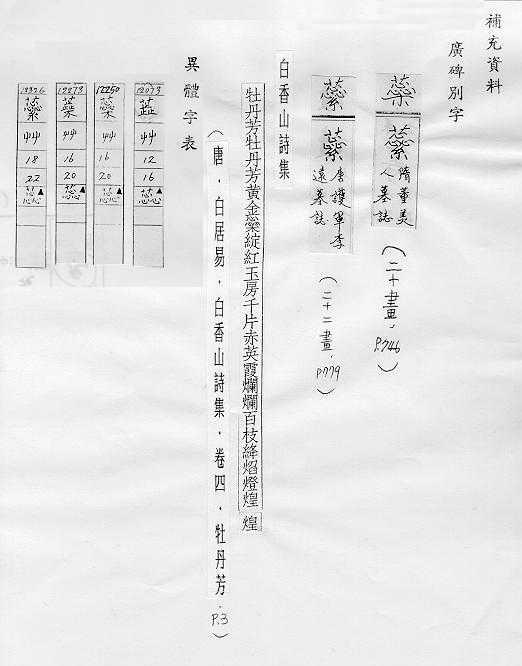 補充資料
廣碑別字
蘂
蘂 隋董美人墓誌
(二十畫.P.746)
蘂
蘂 唐護軍李遠墓誌
(二十二畫.P.779)
白香山詩集
牡丹芳牡丹芳黃金蘂綻紅玉房千片赤英霞爛爛百枝絳焰燈煌煌
(唐.白居易.白香山詩集.卷四.牡丹芳.P.3)
異體字表
12073
艸
12
16
蕊
12250
艸
16
20
蕊
12273
艸
16
20
蕊
艸
18
22
蕊